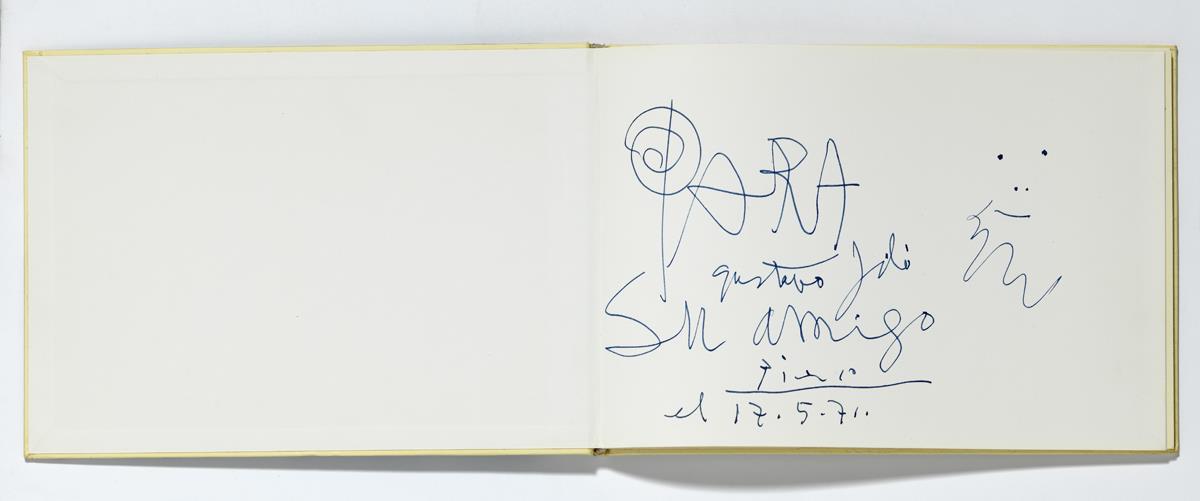 PARA
gustavo Gili
Su amigo
Picasso
el 17.5.71.